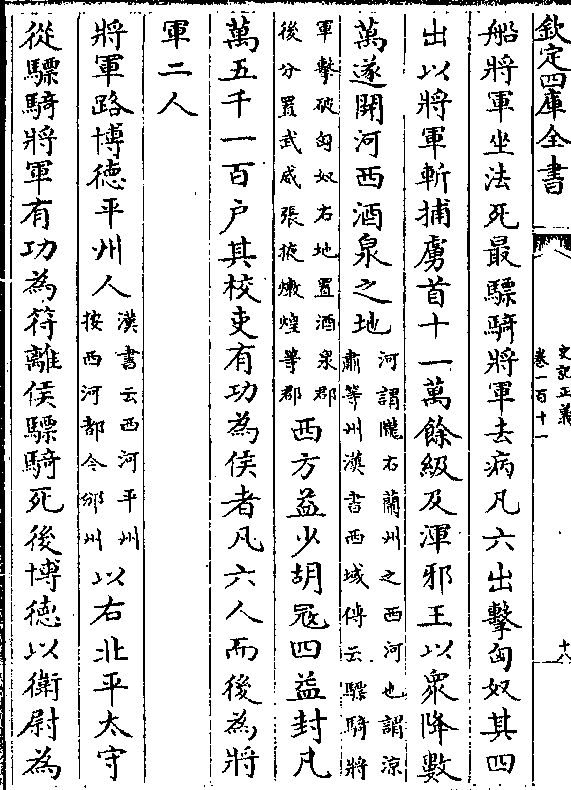 欽定四庫全書
史記正義
卷一百十一
十八
船將軍坐法死最驃騎將軍去病凡六出擊匈奴其四
出以將軍斬捕虜首十一萬餘級及渾邪王以衆降數
萬遂開河西酒泉之地
河謂隴右蘭州之西河也謂涼
肅等州漢書西域傳云驃騎將
軍擊破匈奴右地置酒泉郡
後分置武威張掖燉煌等郡
西方益少胡冦四益封凡
萬五千一百户其校吏有功為侯者凡六人而後為將
軍二人
將軍路博德平州人
漢書云西河平州
按西河郡今邠州
以右北平太守
從驃騎將軍有功為符離侯驃騎死後博德以衛尉為